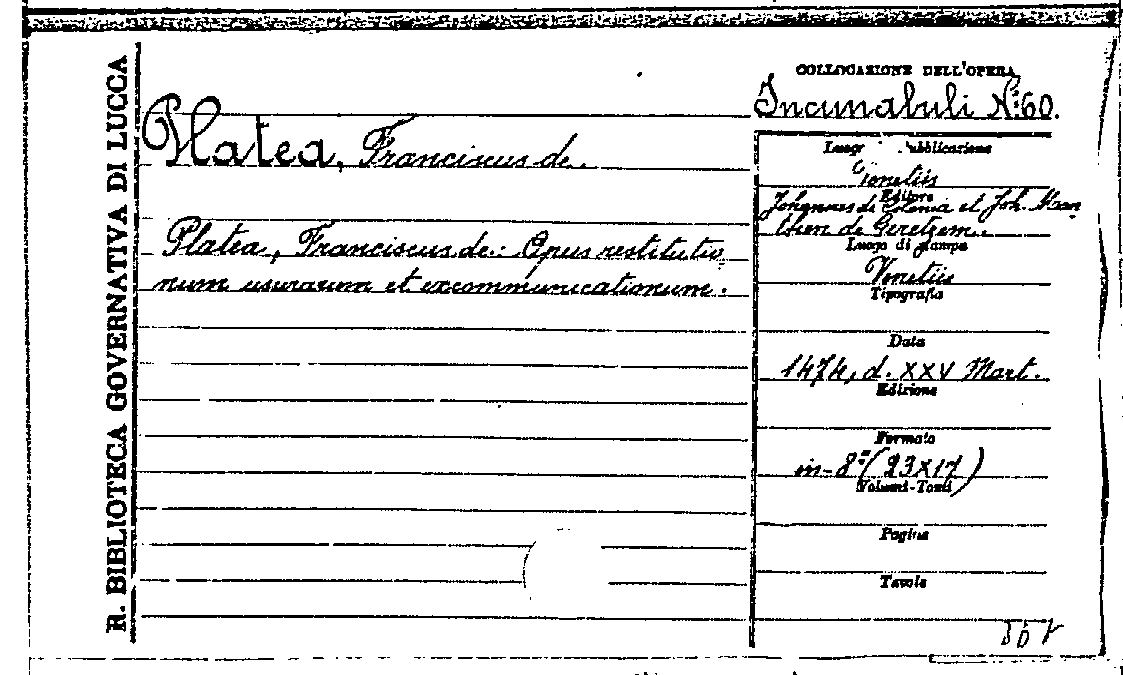 R. BIBLIOTECA GOVERNATIVA DI LUCCA
Platea, Franciscus de.
Platea, Franciscus de: Opus restitutio
num usurarum et excommunicationum.
COLLOCAZIONE DELL'OPERA
Incunabuli N:60.
Luogo Pubblicazione
Venetiis
Editore
Johannes de Colonia et Joh. Man
then de Geretzem.
Luogo di stampa
Venetiis
Tipografia
Data
1474, d. XXV Mart.
Edizione
Formato
in-8° (23X17)
Volumi-Tomi
Pagine
Tavole